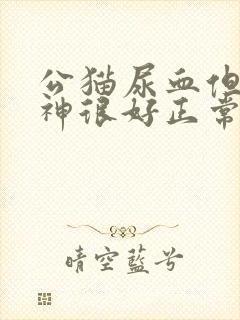 公猫尿血但
神很好正常
晴空藍兮